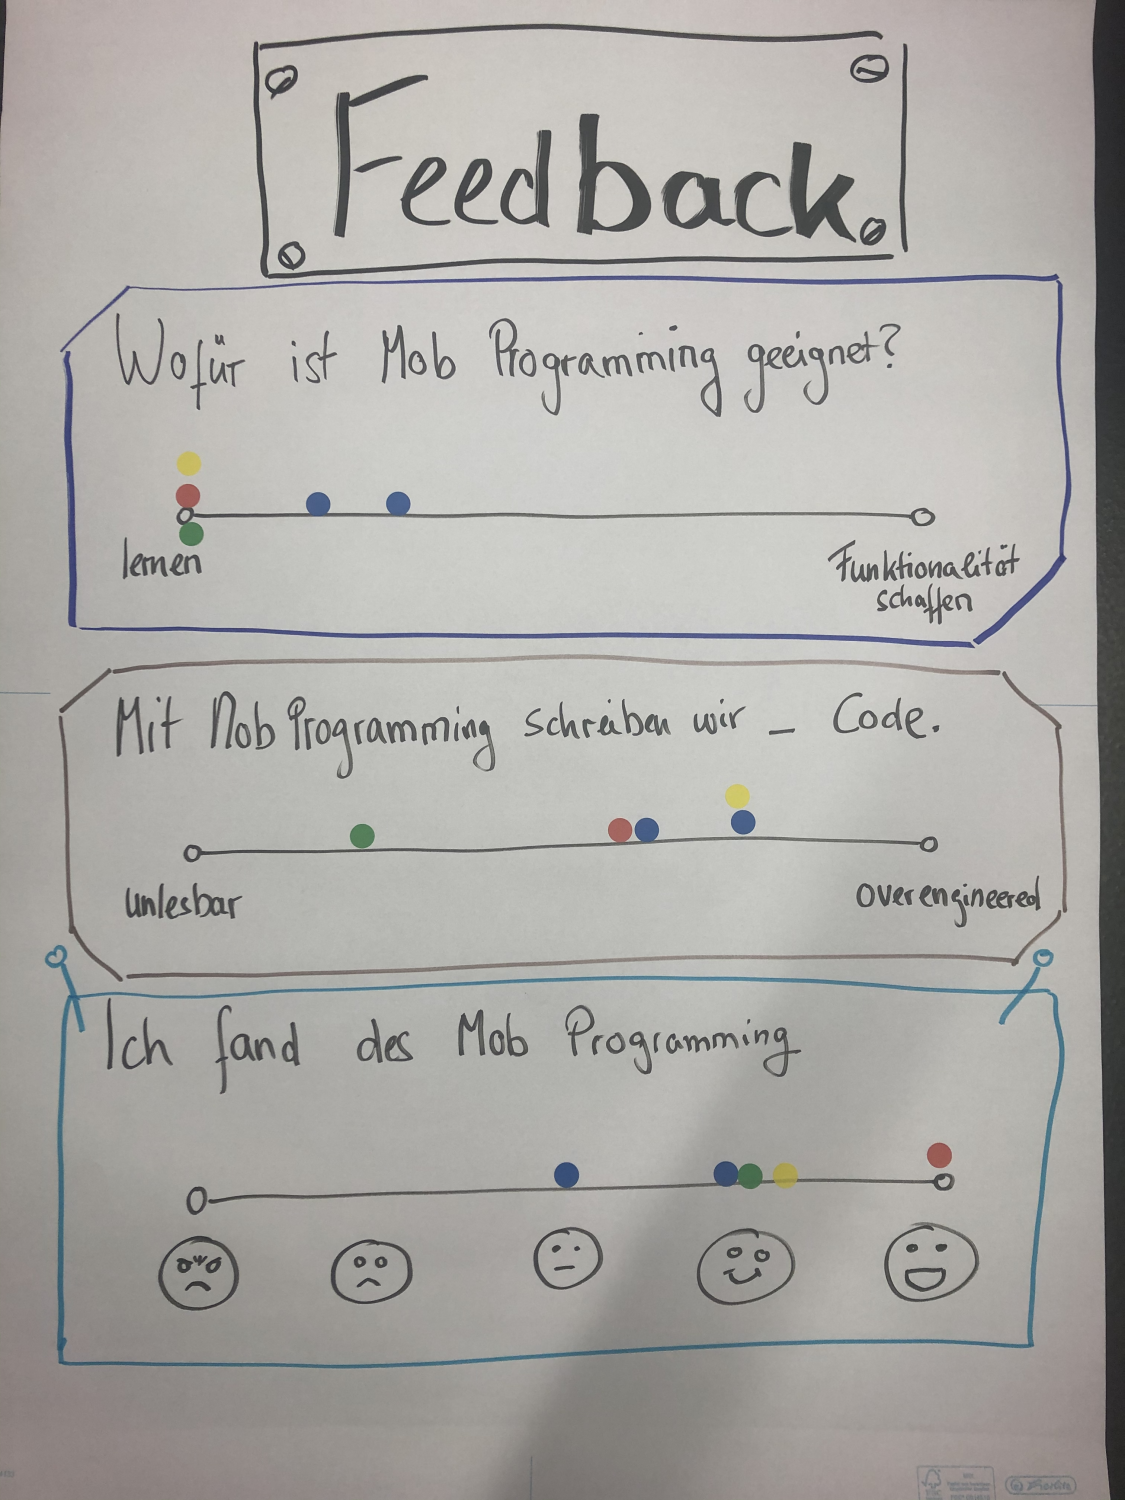 Feedback.
Wofür ist Mob Programming geeignet?
lernen
Funktionalität
schaffen
Mit Mob Programming schreiben wir _ Code.
unlesbar
overengineered
Ich fand des Mob Programming